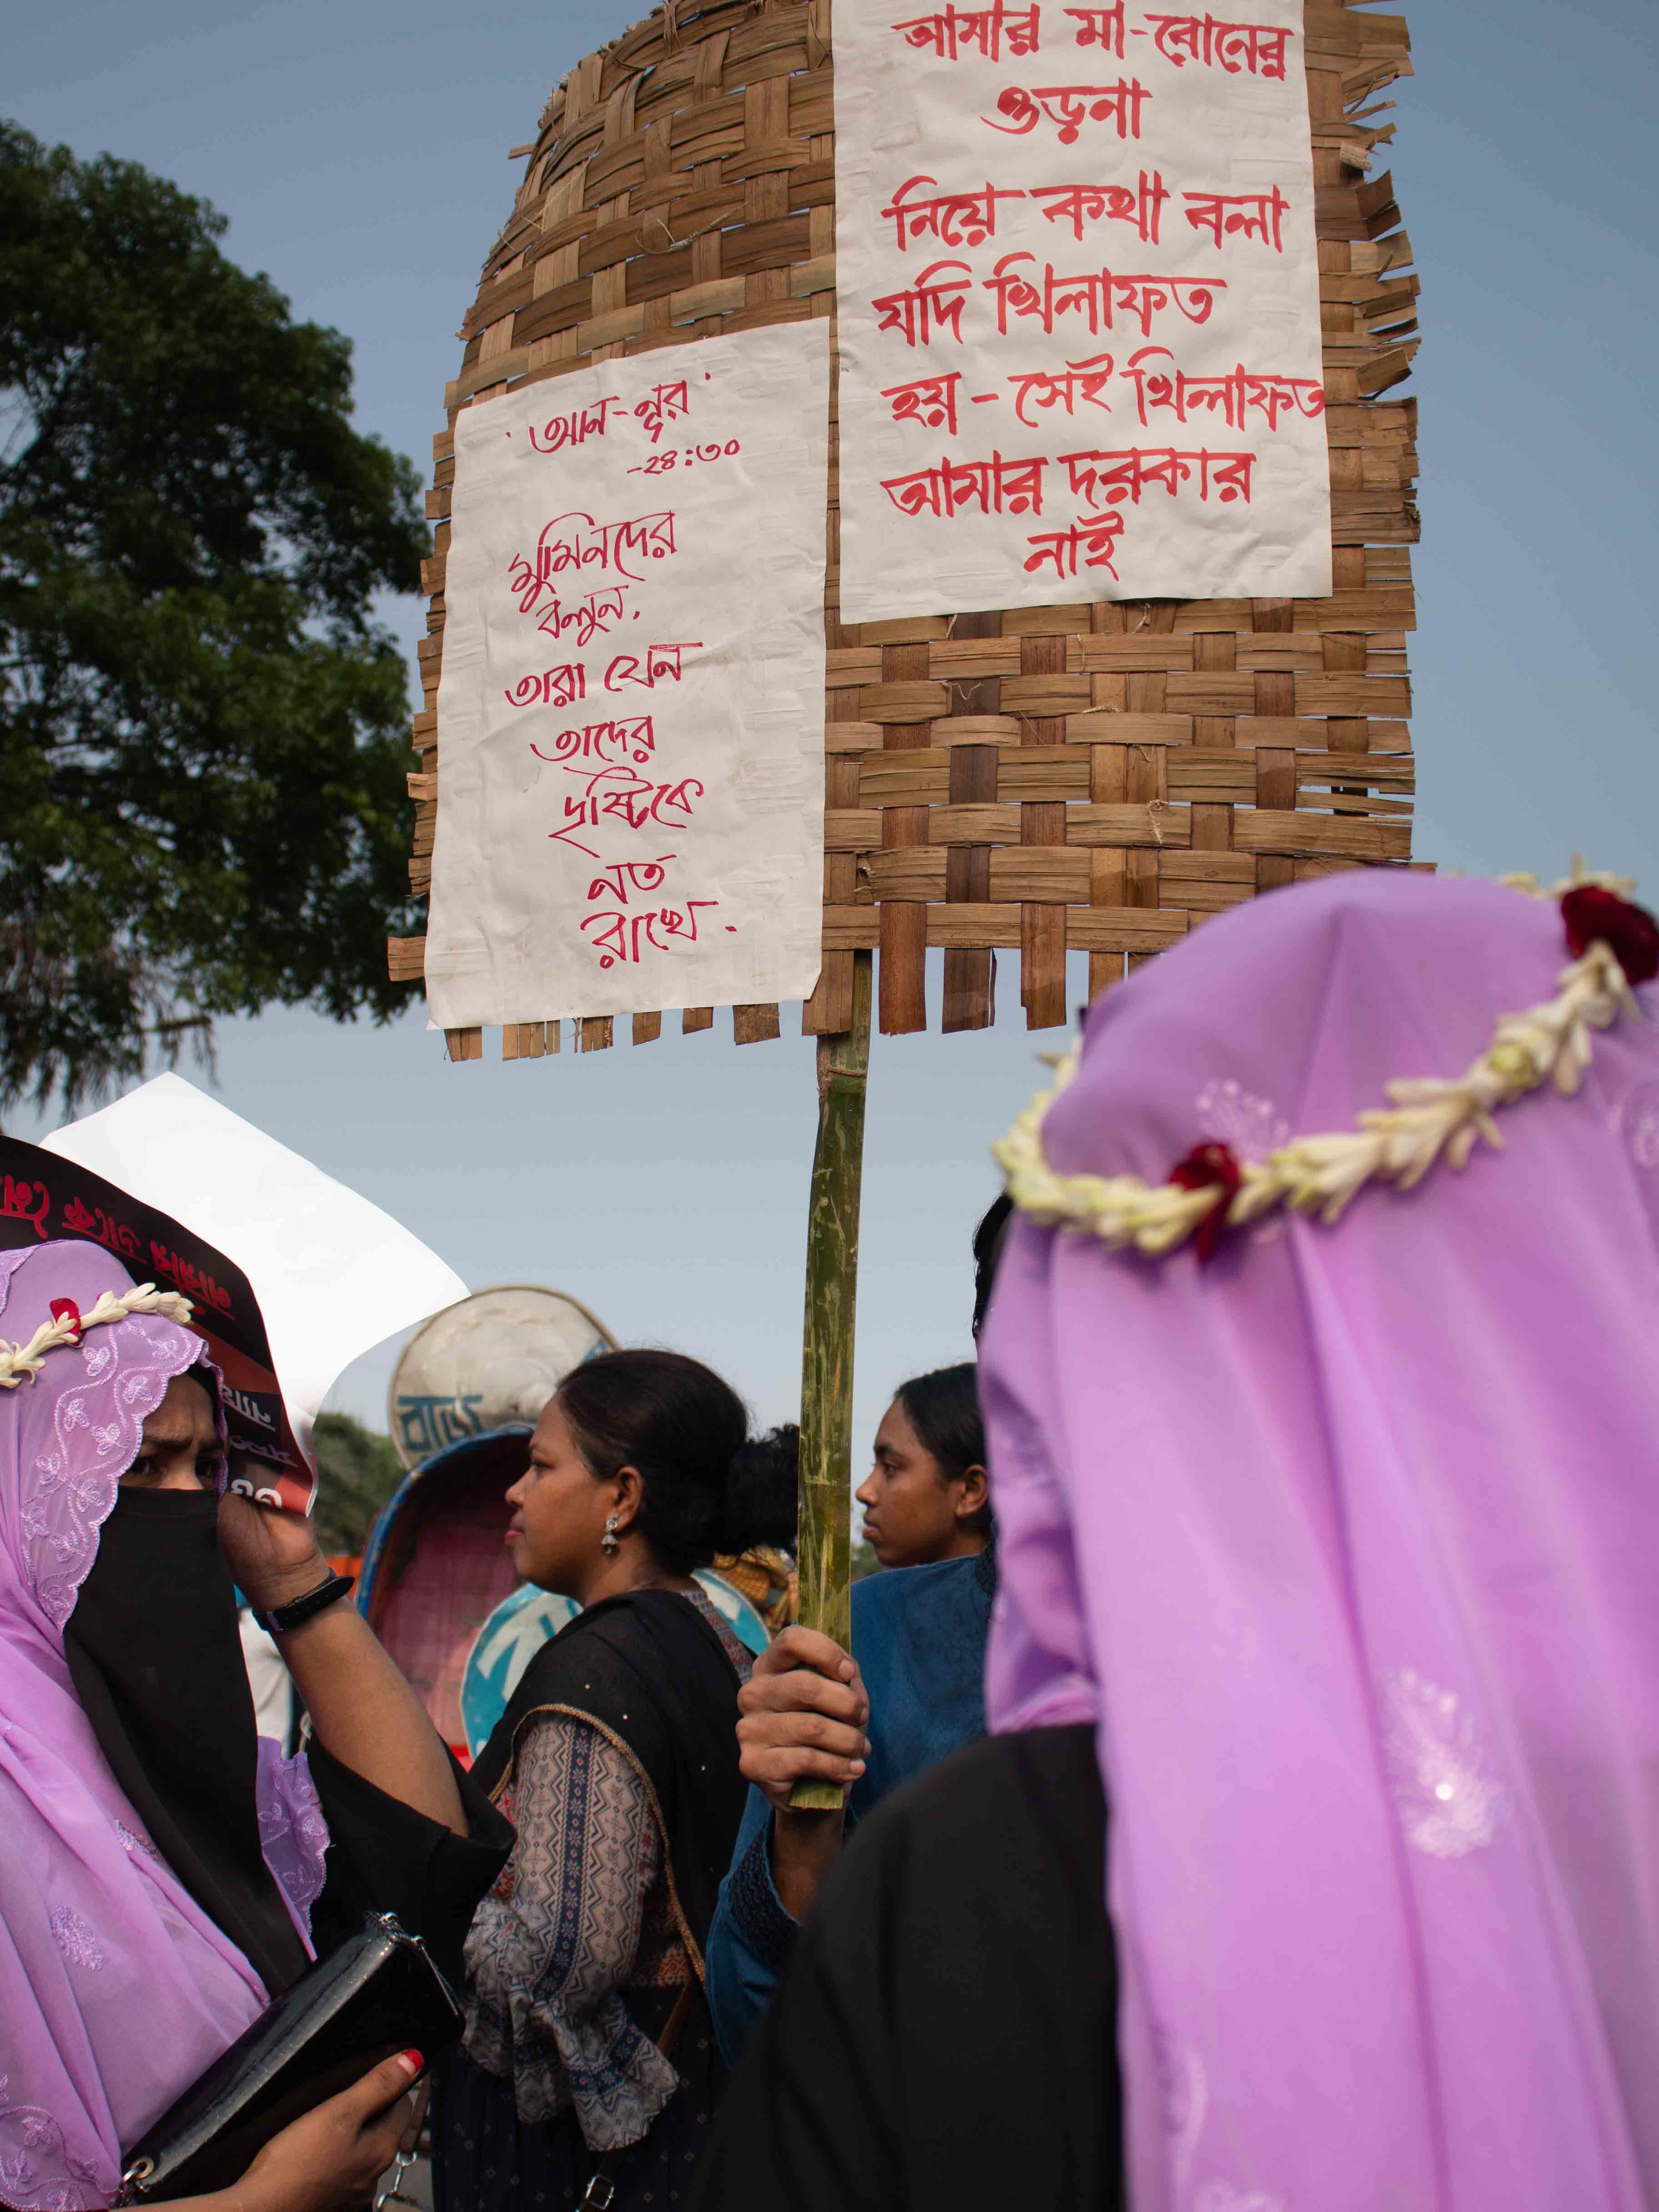 আমার মা-বোনের
ওড়না
নিয়ে কথা বলা
যদি খিলাফত
হয় - সেই খিলাফত
আমার দরকার
নাই
'আন-নূর'
-২৪:৩০
মুমিনদের
বলুন,
তারা যেন
তাদের
দৃষ্টিকে
নত
রাখে.
রাজ